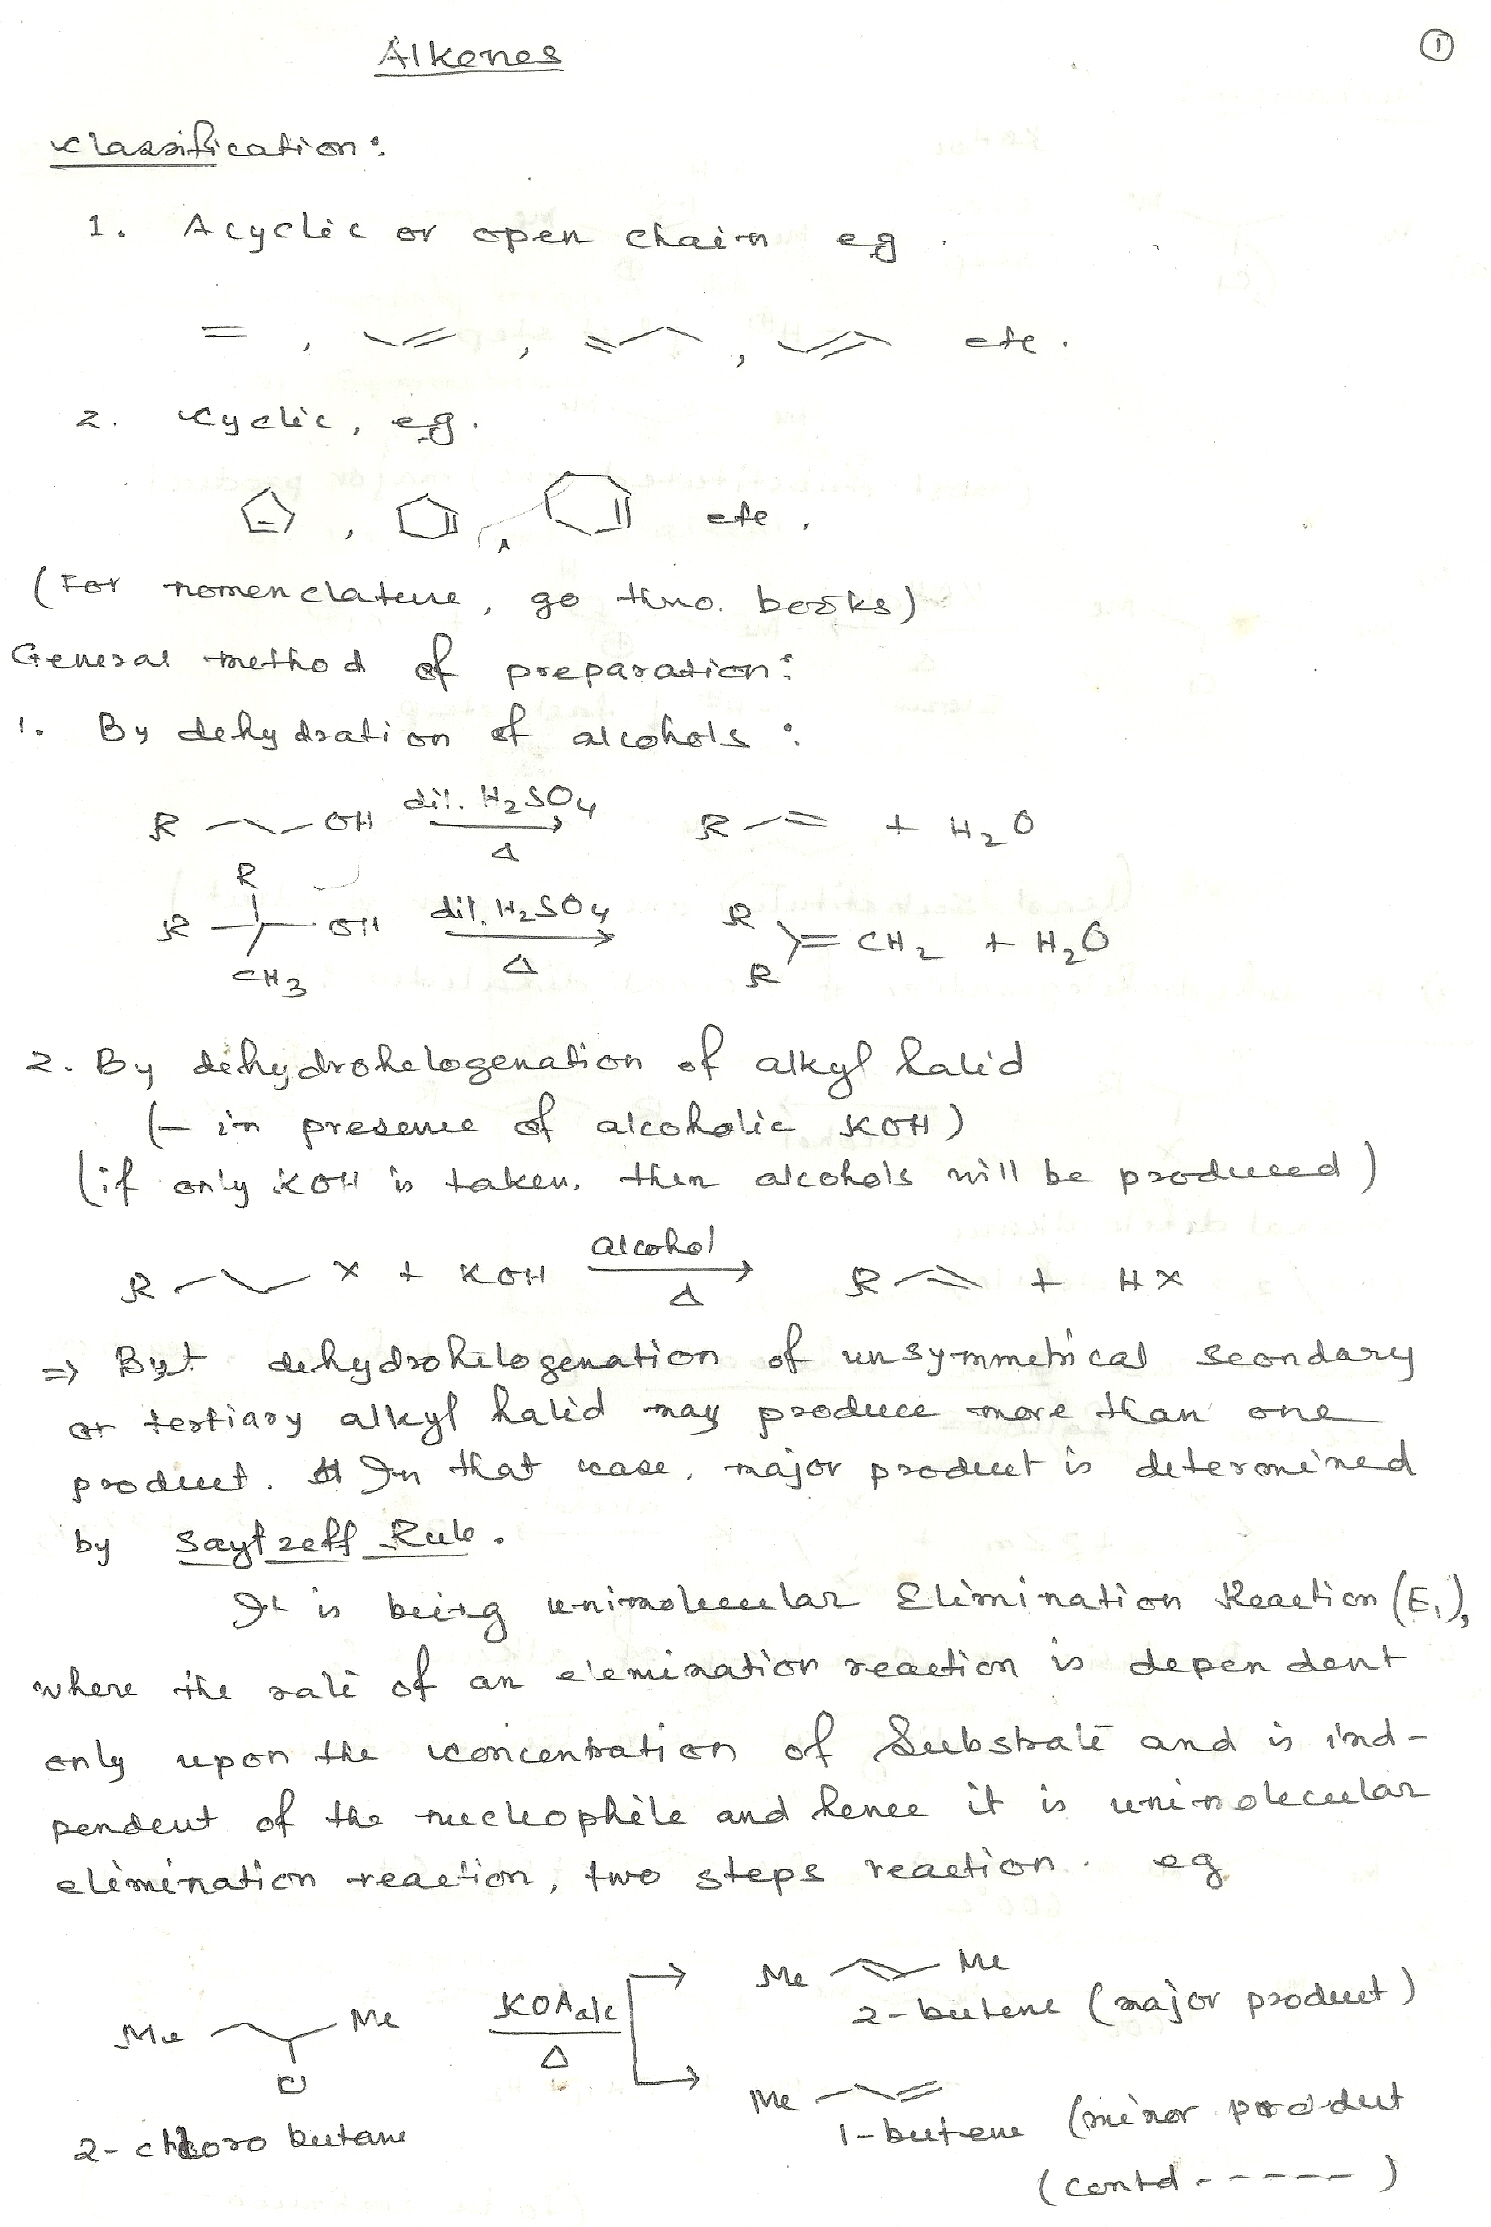 Alkenes
①
Classification:
1. Acyclic or open chain eg.
=, , , , etc.
2. Cyclic, eg.
, , etc.
(For nomenclature, go thro. books)
General method of preparation:
1. By dehydration of alcohols:
R OH dil. H2SO4 Δ R + H2O
R
R OH dil. H2SO4 Δ R R = CH2 + H2O
CH3
2. By dehydrohelogenation of alkyl halid
(- in presence of alcoholic KOH)
(if only KOH is taken, then alcohols will be produced)
R X + KOH alcohol Δ R + HX
⇒ But dehydrohelogenation of unsymmetrical secondary
or tertiary alkyl halid may produce more than one
product. In that case, major product is determined
by Saytzeff Rule.
It is being unimolecular Elimination Reaction (E1),
where the rate of an elemination reaction is dependent
only upon the concentration of Substrate and is ind-
pendent of the nucleophile and hence it is unimolecular
elimination reaction, two steps reaction. eg
Me Me
2-butene (major product)
Me Me KOH alc Δ
Cl
Me
1-butene (minor product
2-chloro butane
(contd - - - - -)